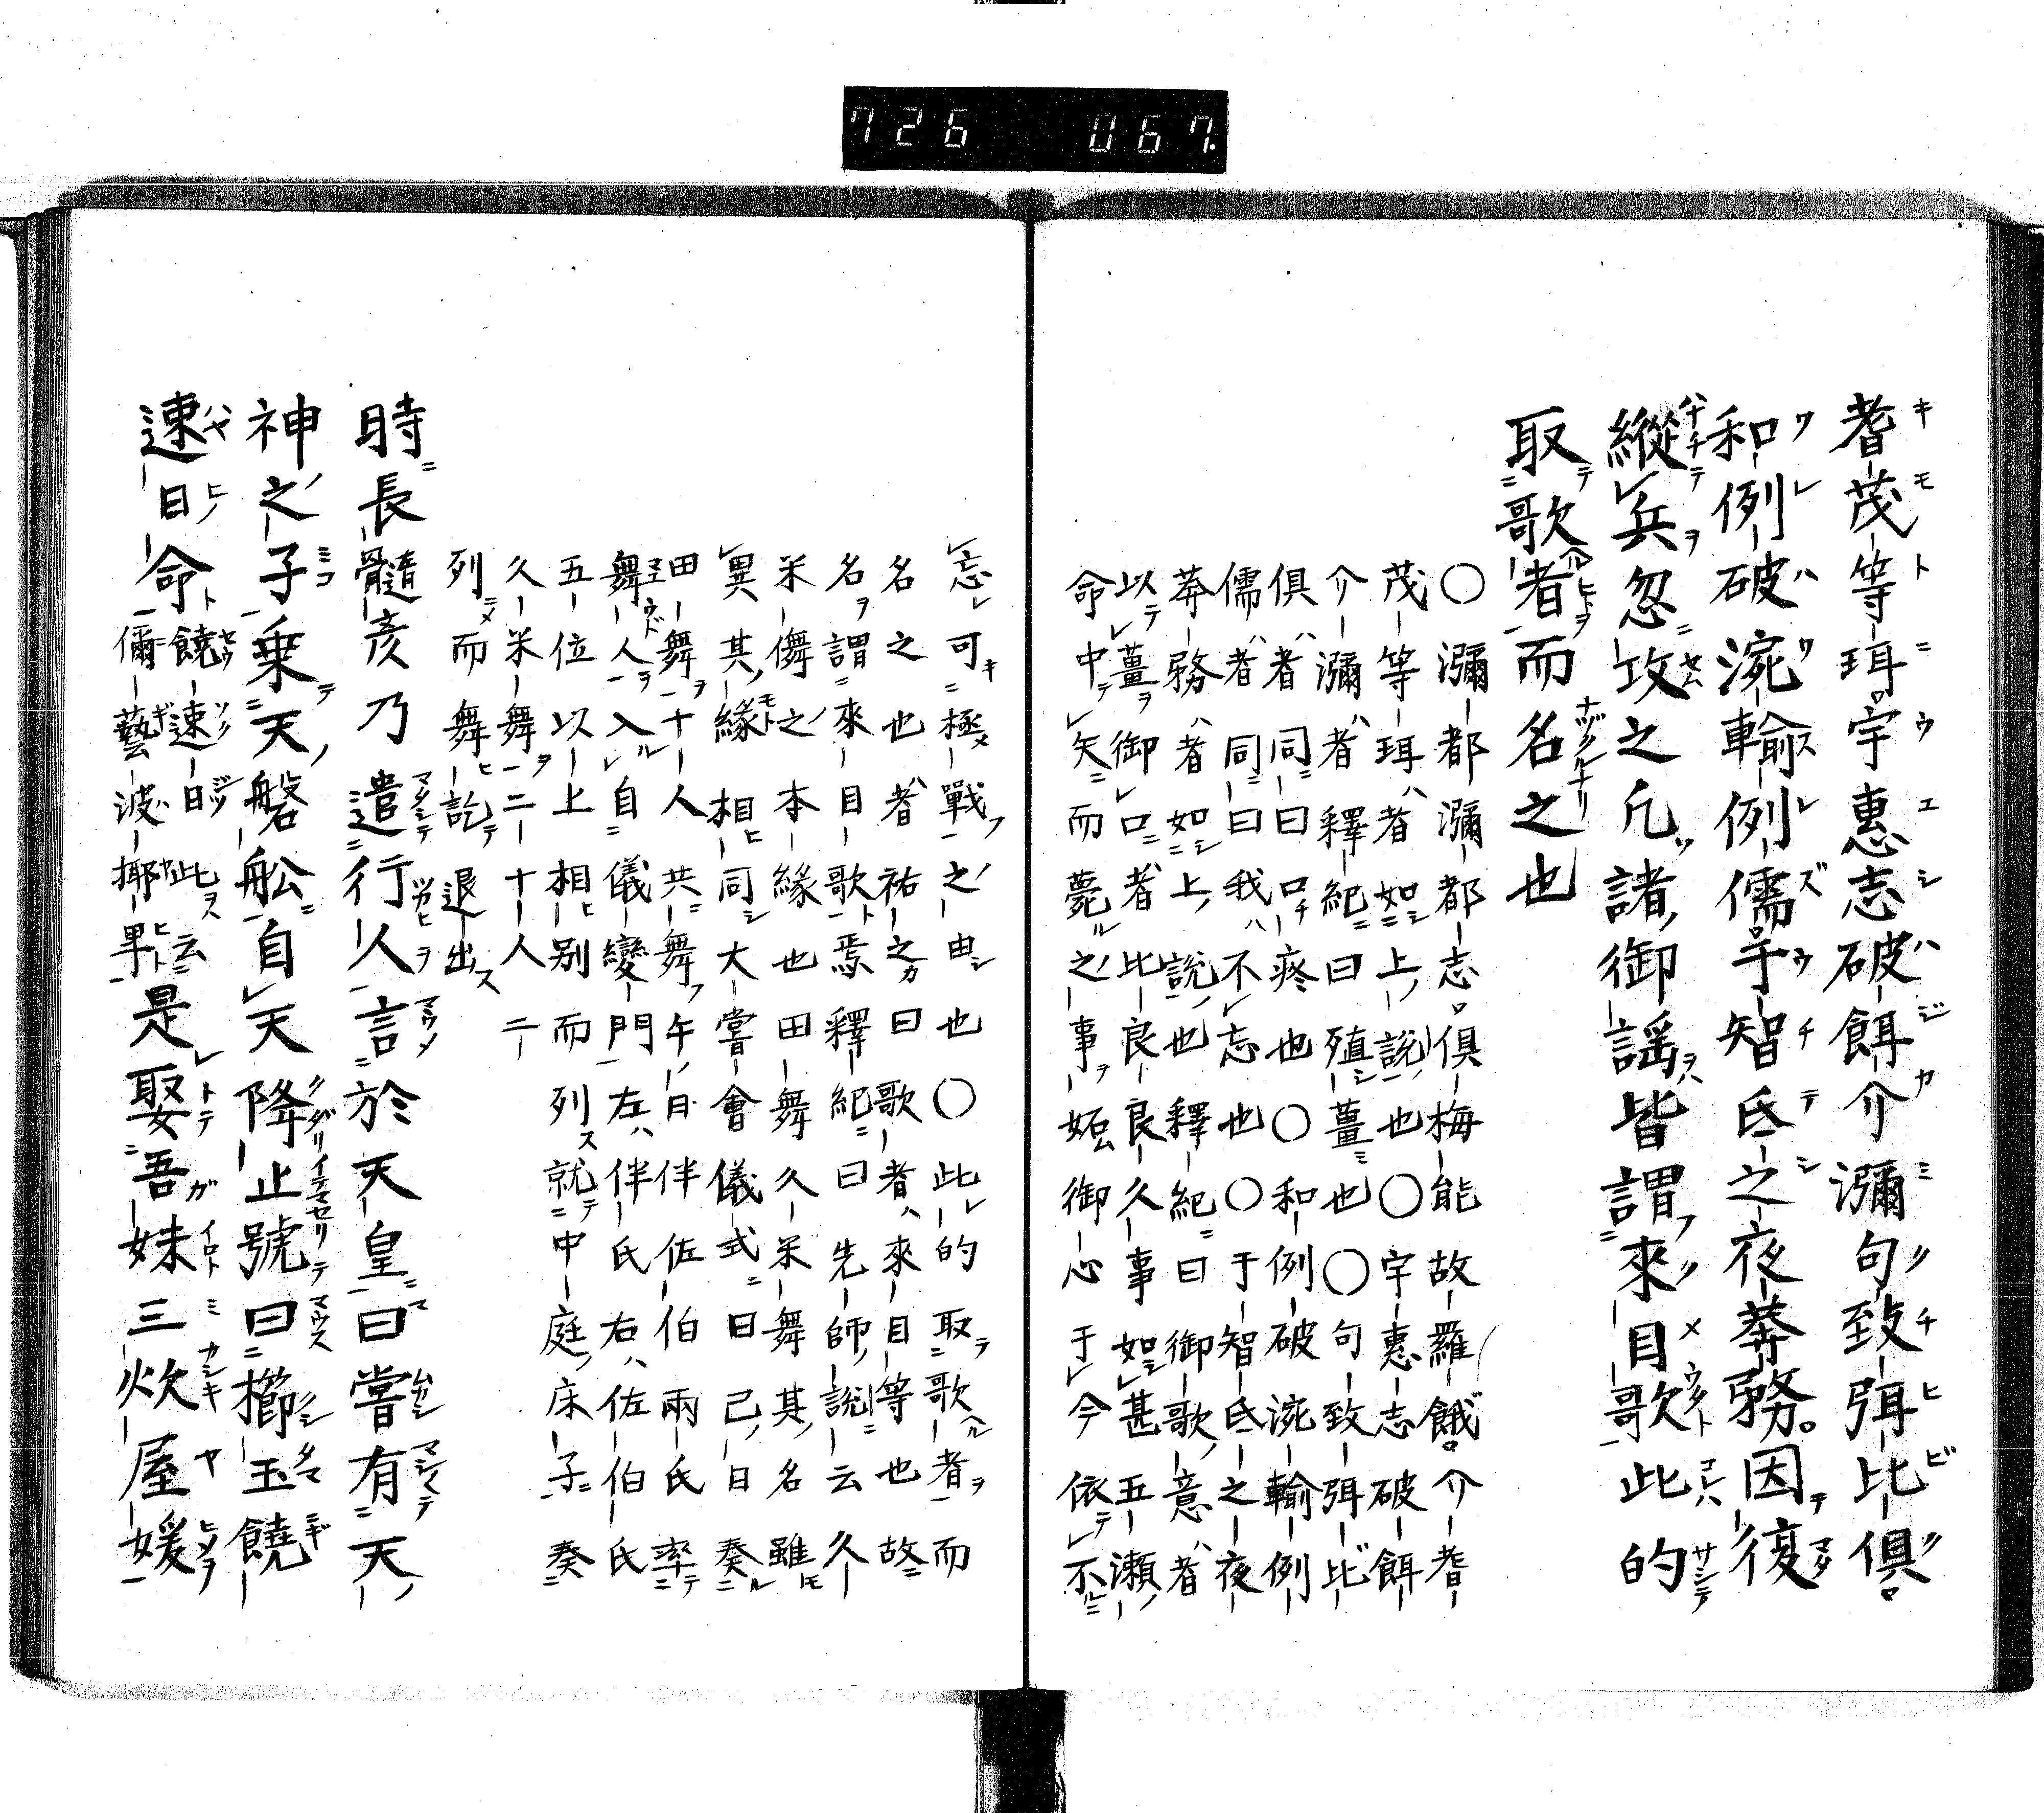 726 067
耆茂等珥宇惠志破餌介瀰句致弭比俱
和例破涴輸例儒于智氐之夜莽務因復
縱兵忽攻之凡諸御謡皆謂來目歌此的
取歌者而名之也
〇瀰都瀰都志俱梅能故羅餓介耆
茂等珥者如上說也〇宇惠志破餌
介瀰者釋紀曰殖薑也〇句致弭比
俱者同曰口疼也〇和例破涴輸例
儒者同曰我不忘也〇于智氐之夜
莽務者如上說也釋紀曰御歌意者
以薑御口者比良良久事如甚五瀨
命中矢而薨之事妬御心于今依不
忘可極戰之由也〇此的取歌者而
名之也者祐之曰歌者來目等也故
名謂來目歌焉釋紀曰先師說云久
米儛之本緣也田舞久米舞其名雖
異其緣相同大嘗會儀式曰己日奏
田舞十人共舞午日伴佐伯兩氏率
舞人入自儀鸞門左伴氏右佐伯氏
五位以上相別而列就中庭床子奏
久米舞二十人二
列而舞訖退出
時長髓彥乃遣行人言於天皇曰嘗有天
神之子乗天磐舩自天降止號曰櫛玉饒
速日命饒速日此云
儞藝波揶卑是娶吾妹三炊屋媛